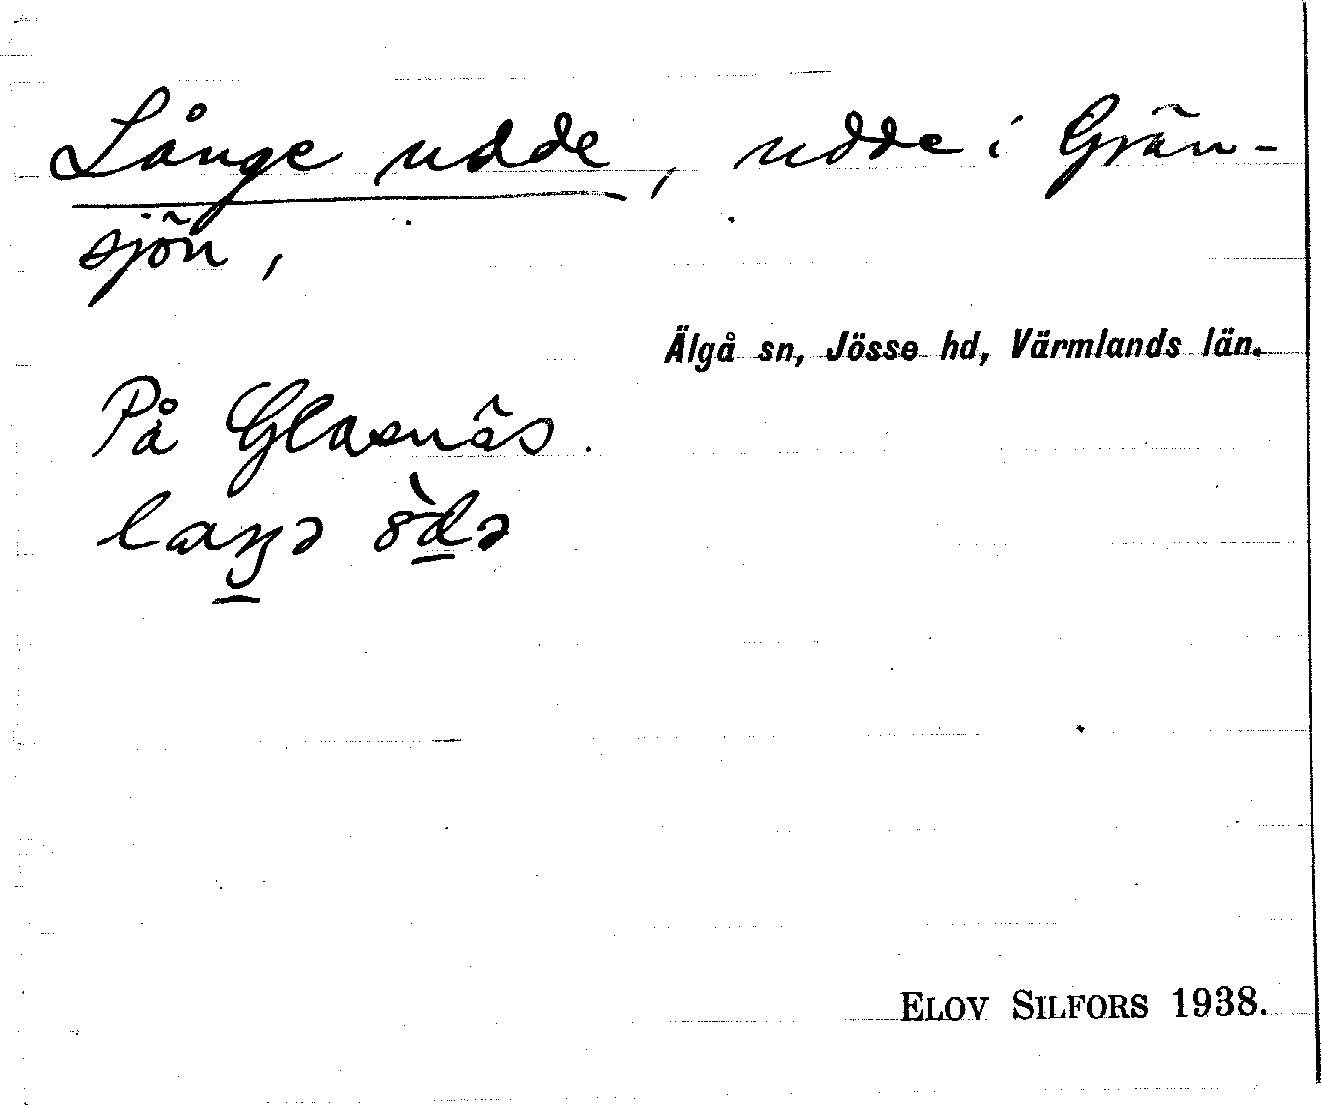 Långe udde, udde i Grän-
sjön,
Älgå sn, Jösse hd, Värmlands län.
På Glasnäs.
ELOV SILFORS 1938.